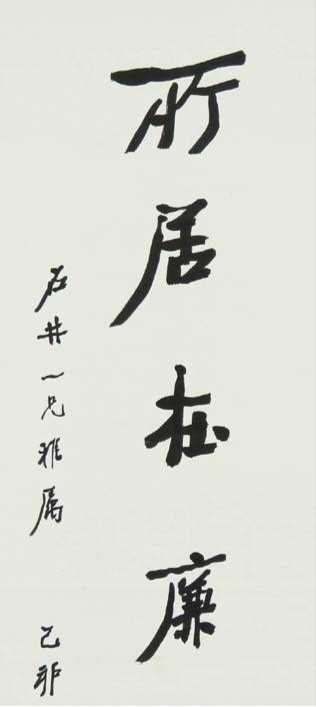 所居在廉
石井一兄雅属
己卯